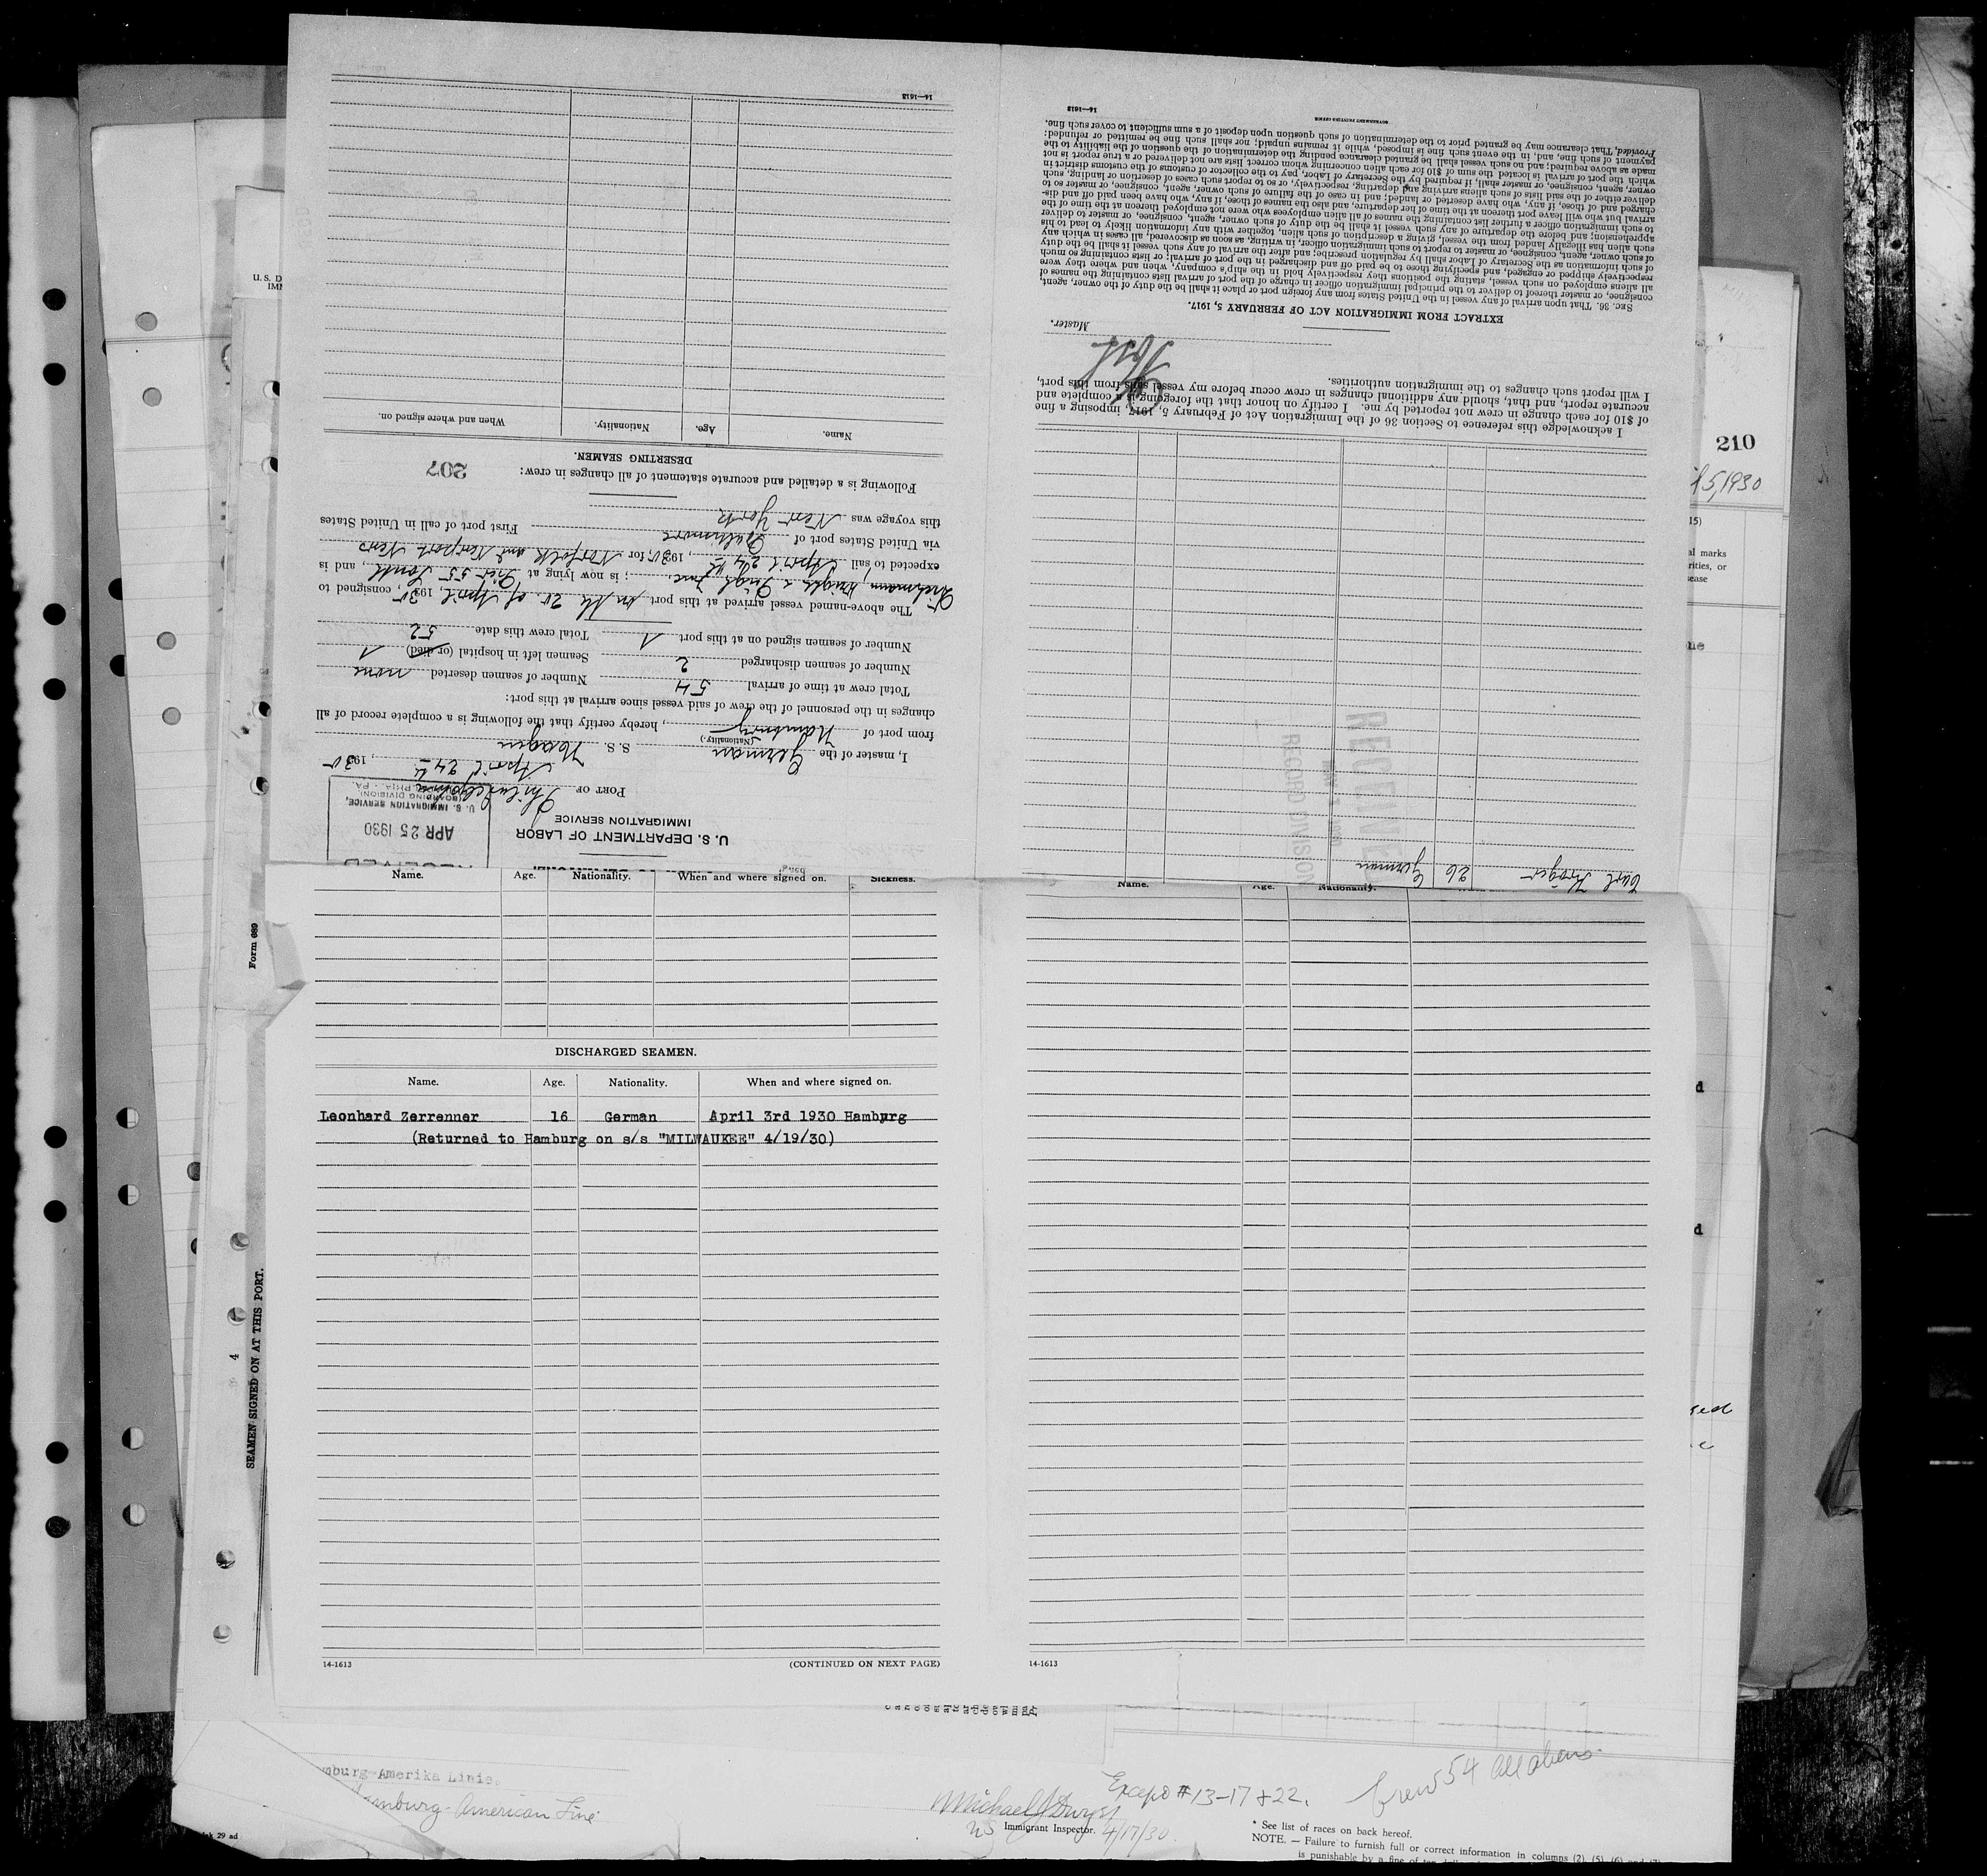 U. S. DEPARTMENT OF LABOR
IMMIGRATION SERVICE
RECEIVED
APR 25 1930
U. S. IMMIGRATION SERVICE,
(BOARDING DIVISION)
PHILA., PA.
PORT OF Philadelphia
April 24th, 1930
I, master of the German S. S.
(Nationality.)
from port of Hamburg, hereby certify that the following is a complete record of all
changes in the personnel of the crew of said vessel since arrival at this port:
Total crew at time of arrival 54 Number of seamen deserted none
Number of seamen discharged 2 Seamen left in hospital (or died) 1
Number of seamen signed on at this port 1 Total crew this date 52
The above-named vessel arrived at this port on the 20. of April, 1930 consigned to
Dichmann, Wright & Pugh Inc.; is now lying at Pier 55 South, and is
expected to sail April 24th, 1930, for Norfolk and Newport News
via United States port of Baltimore First port of call in United States
this voyage was New York
Following is a detailed and accurate statement of all changes in crew:
207
DESERTING SEAMEN.
Name. Age. Nationality. When and where signed on.
14—1613
Curt Kröger 26 German
RECEIVED
RECORD DIVISION
I acknowledge this reference to Section 36 of the Immigration Act of February 5, 1917, imposing a fine
of $10 for each change in crew not reported by me. I certify on honor that the foregoing is a complete and
accurate report, and that, should any additional changes in crew occur before my vessel sails from this port,
I will report such changes to the immigration authorities.
Master.
EXTRACT FROM IMMIGRATION ACT OF FEBRUARY 5, 1917.
SEC. 36. That upon arrival of any vessel in the United States from any foreign port or place it shall be the duty of the owner, agent,
consignee, or master thereof to deliver to the principal immigration officer in charge of the port of arrival lists containing the names of
all aliens employed on such vessel, stating the positions they respectively hold in the ship's company, when and where they were
respectively shipped or engaged, and specifying those to be paid off and discharged in the port of arrival; or lists containing so much
of such information as the Secretary of Labor shall by regulation prescribe; and after the arrival of any such vessel it shall be the duty
of such owner, agent, consignee, or master to report to such immigration officer, in writing, as soon as discovered, all cases in which any
such alien has illegally landed from the vessel, giving a description of such alien, together with any information likely to lead to his
apprehension; and before the departure of any such vessel it shall be the duty of such owner, agent, consignee, or master to deliver
to such immigration officer a further list containing the names of all alien employees who were not employed thereon at the time of the
arrival but who will leave port thereon at the time of her departure, and also the names of those, if any, who have been paid off and dis-
charged and of those, if any, who have deserted or landed; and in case of the failure of such owner, agent, consignee, or master so to
deliver either of the said lists of such aliens arriving and departing, respectively, or so to report such cases of desertion or landing, such
owner, agent, consignee, or master shall, if required by the Secretary of Labor, pay to the collector of customs of the customs district in
which the port of arrival is located the sum of $10 for each alien concerning whom correct lists are not delivered or a true report is not
made as above required; and no such vessel shall be granted clearance pending the determination of the question of the liability to the
payment of such fine, and, in the event such fine is imposed, while it remains unpaid; nor shall such fine be remitted or refunded:
Provided, That clearance may be granted prior to the determination of such question upon deposit of a sum sufficient to cover such fine.
GOVERNMENT PRINTING OFFICE
14—1613
Name. Age. Nationality. When and where signed on. Sickness.
DISCHARGED SEAMEN.
Name. Age. Nationality. When and where signed on.
Leonhard Zerrenner 16 German April 3rd 1930 Hamburg
(Returned to Hamburg on s/s "MILWAUKEE" 4/19/30)
14-1613 (CONTINUED ON NEXT PAGE)
Name. Age. Nationality.
14-1613
U. S. D
IM
Form 689
SEAMEN SIGNED ON AT THIS PORT.
4
210
5, 1930
15)
al marks
rities, or
sease
ne
d
d
sed
mburg-Amerika Linie
Hamburg-American Line
29 ad
Except #13-17+22.
Crew 54 All aliens
Michael J Dwyer
US Immigrant Inspector. 4/17/30
* See list of races on back hereof.
NOTE. — Failure to furnish full or correct information in columns (2), (5), (6) and (7)
is punishable by a fine of ten